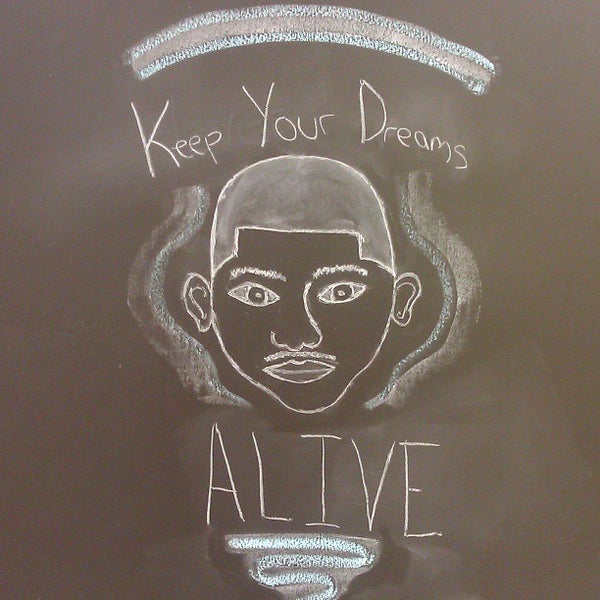 Keep Your Dreams
ALIVE